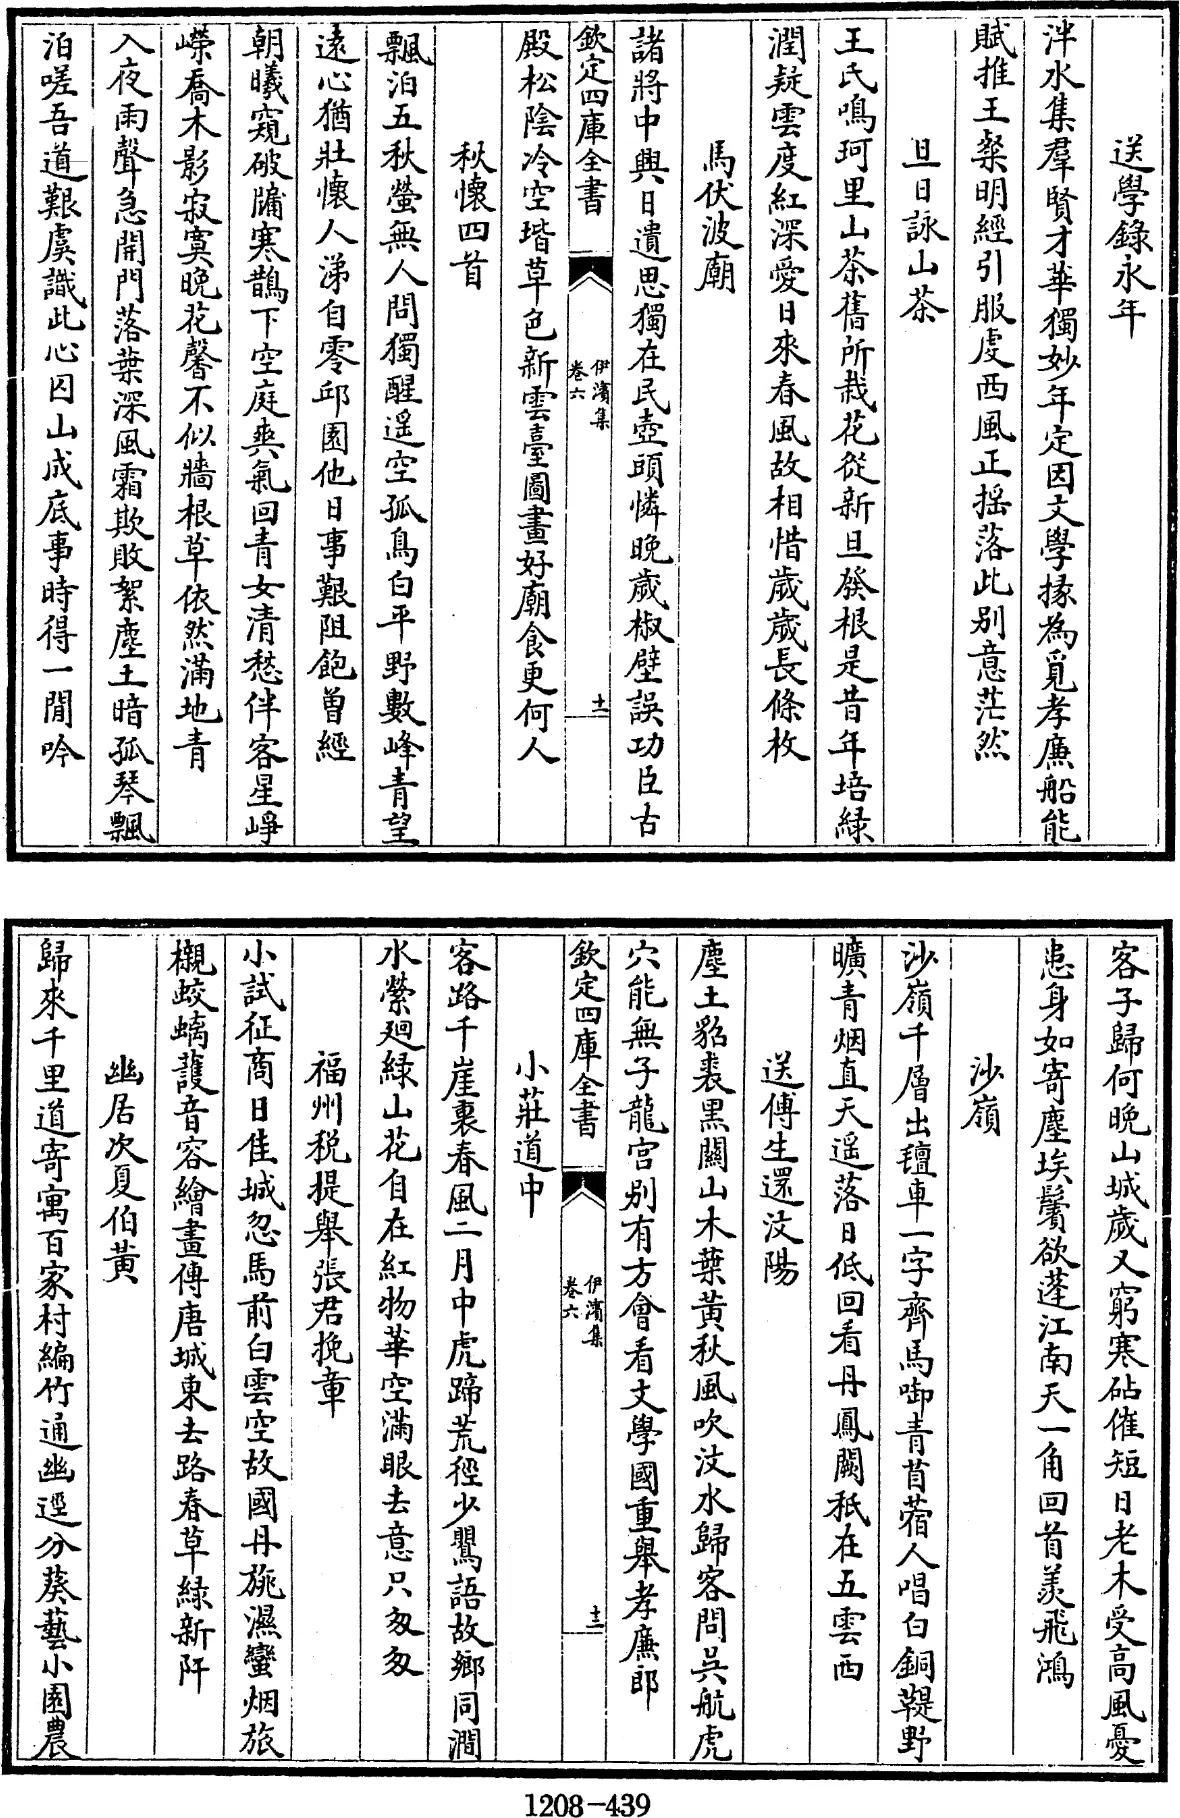 送學錄永年
泮水集羣賢才華獨妙年定因文學掾為覓孝廉船能
賦推王粲明經引服虔西風正揺落此别意茫然
旦日詠山茶
王氏鳴珂里山茶舊所栽花從新旦發根是昔年培緑
潤疑雲度紅深愛日來春風故相惜歲歲長條枚
馬伏波廟
諸將中興日遺思獨在民壺頭憐晚歲椒壁誤功臣古
欽定四庫全書
伊濱集
卷六
十一
殿松陰冷空堦草色新雲臺圖畫好廟食更何人
秋懷四首
飄泊五秋螢無人問獨醒遥空孤鳥白平野數峰青望
遠心猶壯懷人涕自零邱園他日事艱阻飽曽經
朝曦窺破牖寒鵲下空庭爽氣回青女清愁伴客星崢
嶸喬木影寂寞晚花馨不似牆根草依然滿地青
入夜雨聲急開門落葉深風霜欺敗絮塵土暗孤琴飄
泊嗟吾道艱虞識此心囚山成底事時得一閒吟
客子歸何晚山城歲又窮寒砧催短日老木受高風憂
患身如寄塵埃鬢欲蓬江南天一角回首羡飛鴻
沙嶺
沙嶺千層出氊車一字齊馬啣青苜蓿人唱白銅鞮野
曠青烟直天遥落日低回看丹鳳闕秪在五雲西
送傅生還汶陽
塵土貂裘黒關山木葉黃秋風吹汶水歸客問吳航虎
穴能無子龍宫别有方會看文學國重舉孝廉郎
欽定四庫全書
伊濱集
卷六
十二
小莊道中
客路千崖裏春風二月中虎蹄荒徑少鸎語故鄉同澗
水縈廻緑山花自在紅物華空滿眼去意只匆匆
福州税提舉張君挽章
小試征商日佳城忽馬前白雲空故國丹旐濕蠻烟旅
櫬蛟螭護音容繪畫傳唐城東去路春草緑新阡
幽居次夏伯黃
歸來千里道寄寓百家村編竹通幽逕分葵藝小園農
1208-439